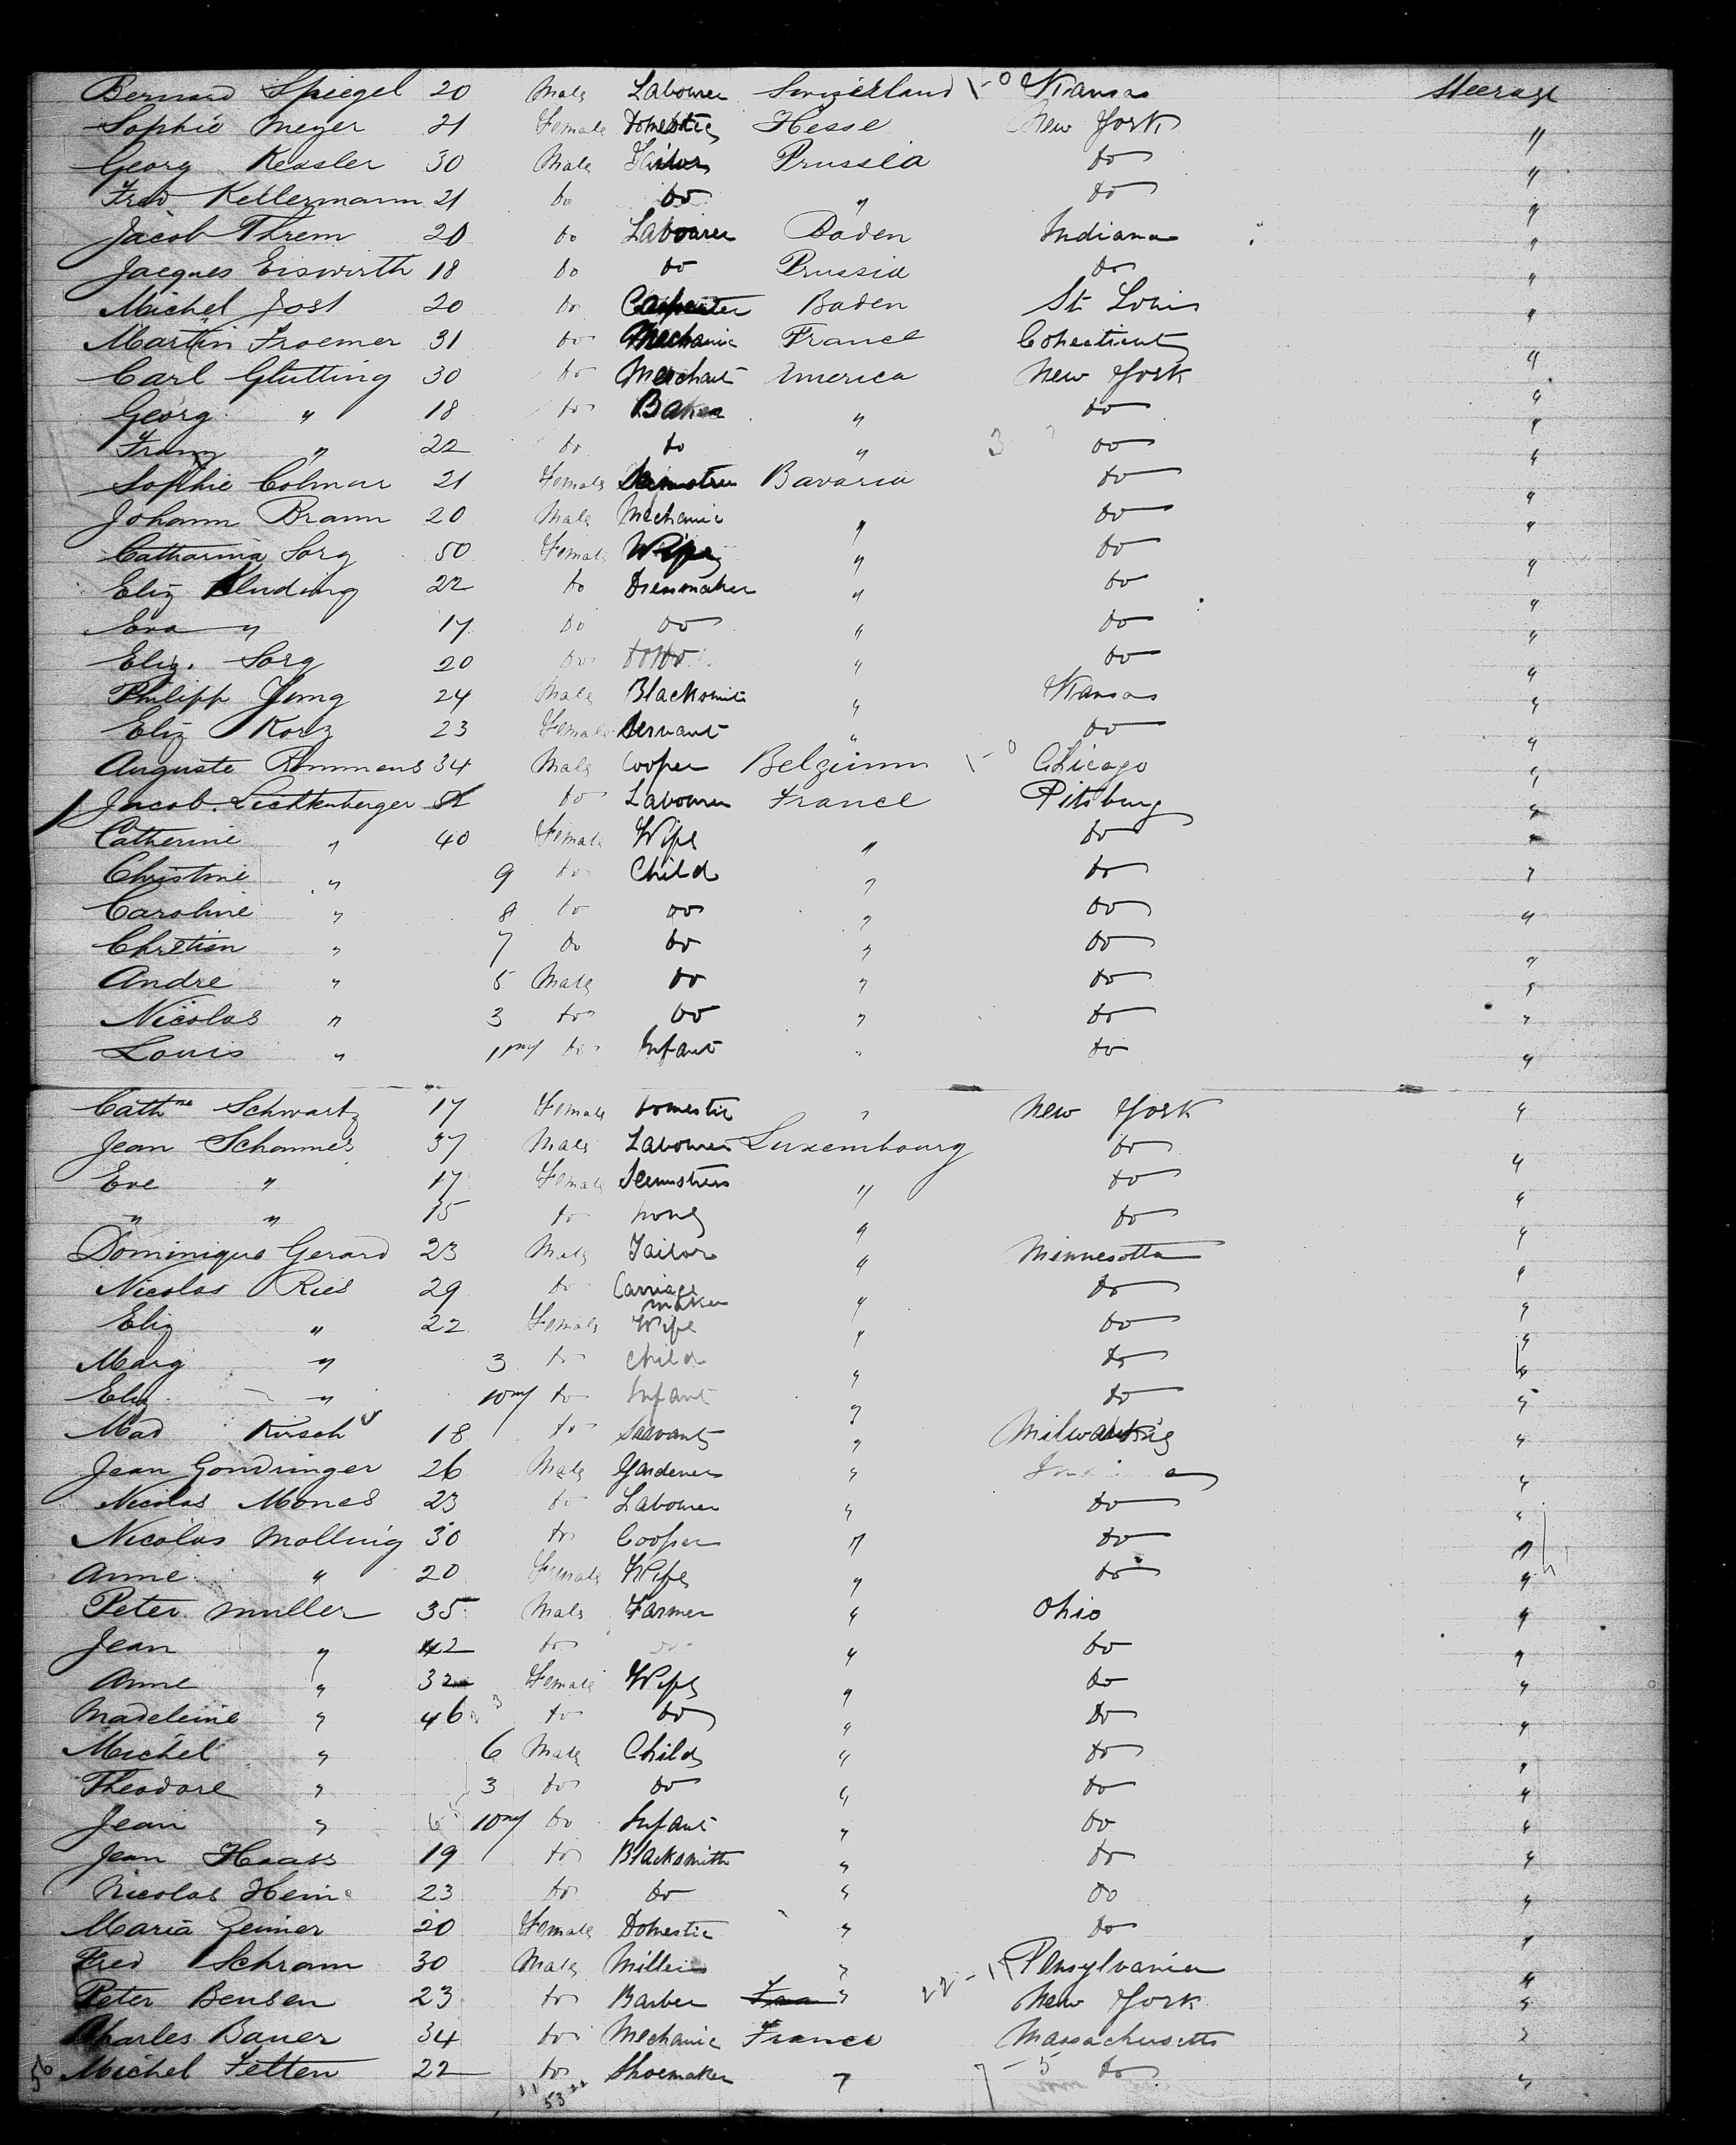 Bernard Spiegel 20 Male Labourer Switzerland 1-0 Kansas Steerage
Sophie Meyer 21 Female Domestic Hesse New York "
Georg Kessler 30 Male Tailor Prussia do "
Fred Kellermann 21 do do " do "
Jacob Threm 20 do Labourer Baden Indiana "
Jacques Eiswirth 18 do do Prussia do "
Michel Jost 20 do Carpenter Baden St Louis "
Martin Froemer 31 do Mechanic France Conecticut "
Carl Glutting 30 do Merchant America New York "
Georg " 18 do Baker " do "
Franz " 22 do do " 3 do "
Sophie Colmar 21 Female Bavaria do "
Johann Braun 20 Male Mechanic " do "
Catharina Sorg 50 Female Wife " do "
Eliz Kluding 22 do Dressmaker " do "
Eva " 17 do do " do "
Eliz. Sorg 20 do do " do "
Philipp Jung 24 Male Blacksmith " Kansas "
Eliz Korz 23 Female Servant " do "
Auguste Rommens 34 Male Cooper Belgium 1-0 Chicago "
Jacob Lichtenberger do Labourer France Pitsburg "
Catherine " 40 Female Wife " do "
Christine " 9 do Child " do "
Caroline " 8 do do " do "
Chretien " 7 do do " do "
Andre " 5 Male do " do "
Nicolas " 3 do do " do "
Louis " 11m do Infant " do "
Cathne Schwartz 17 Female Domestic " New York "
Jean Schannes 37 Male Labourer Luxembourg do "
Eve " 17 Female Seemstress " do "
" " 15 do none " do "
Dominique Gerard 23 Male Tailor " Minnesotta "
Nicolas Ries 29 do Carriage maker " do "
Eliz " 22 Female Wife " do "
Marg " 3 do Child " do "
Eliz " 10m do Infant " do "
Mad Kirsch 18 do Servant " Milwaukie "
Jean Gondringer 26 Male Gardener " "
Nicolas Mones 23 do Labourer " do "
Nicolas Molling 30 do Cooper " do "
Anne " 20 Female Wife " do "
Peter Muller 35 Male Farmer " Ohio "
Jean " 42 do do " do "
Anne " 32 Female Wife " do "
Madeleine " 46 do do " do "
Michel " 6 Male Child " do "
Theodore " 3 do do " do "
Jean " 10m do Infant " do "
Jean Haass 19 do Blacksmith " do "
Nicolas Hein 23 do do " do "
Maria Zeimer 20 Female Domestic " do "
Fred Schram 30 Male Miller " Pensylvania "
Peter Bensen 23 do Barber " New York "
Charles Bauer 34 do Mechanic France Massachusetts "
56 Michel Fetten 22 do Shoemaker " 7-5 do "
53